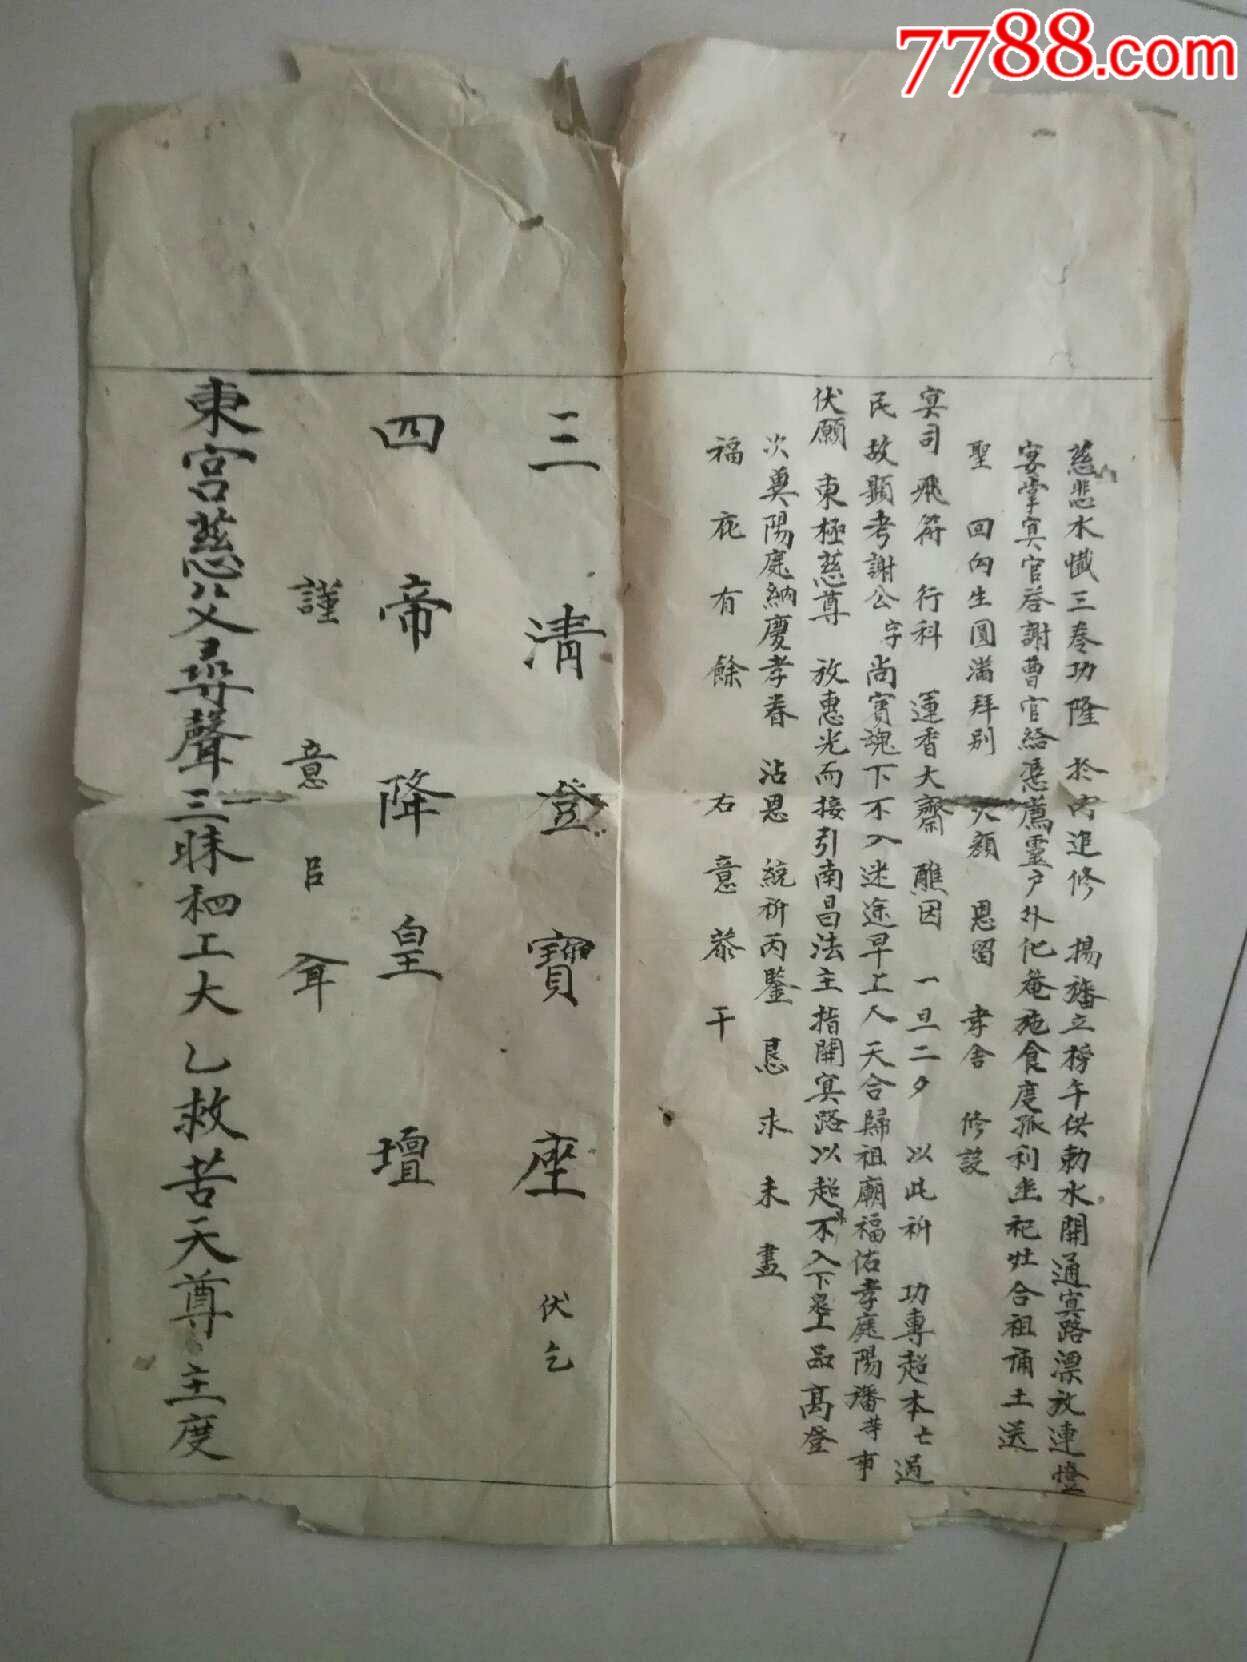 7788.com
慈悲水懺三卷功隆 於內追修 揚旛立榜午供勅水開通冥路漂放連燈
宴掌冥官答謝曹官給憑薦靈户外化菴施食度孤利幽祀灶合祖誦土送
聖 回向生圓滿拜别 天顏 恩留 孝舍 修設
冥司飛符 行科 運香大齋 醮因 一旦二夕 以此祈 功專超本七過
民故顯考謝公字尚賓魂下不入迷途早上人天合歸祖廟福佑孝庭陽旛等事
伏願 東極慈尊 放惠光而接引南昌法主指開冥路以超昇不入下泉上品高登
次奠陽庭納慶孝眷 沾恩 統祈丙鑒 恳求未盡
福庇有餘 右意恭干
三清登寶座 伏乞
四帝降皇壇
謹意 臣
東宫慈父尋聲三昧 工大乙救苦天尊 主度